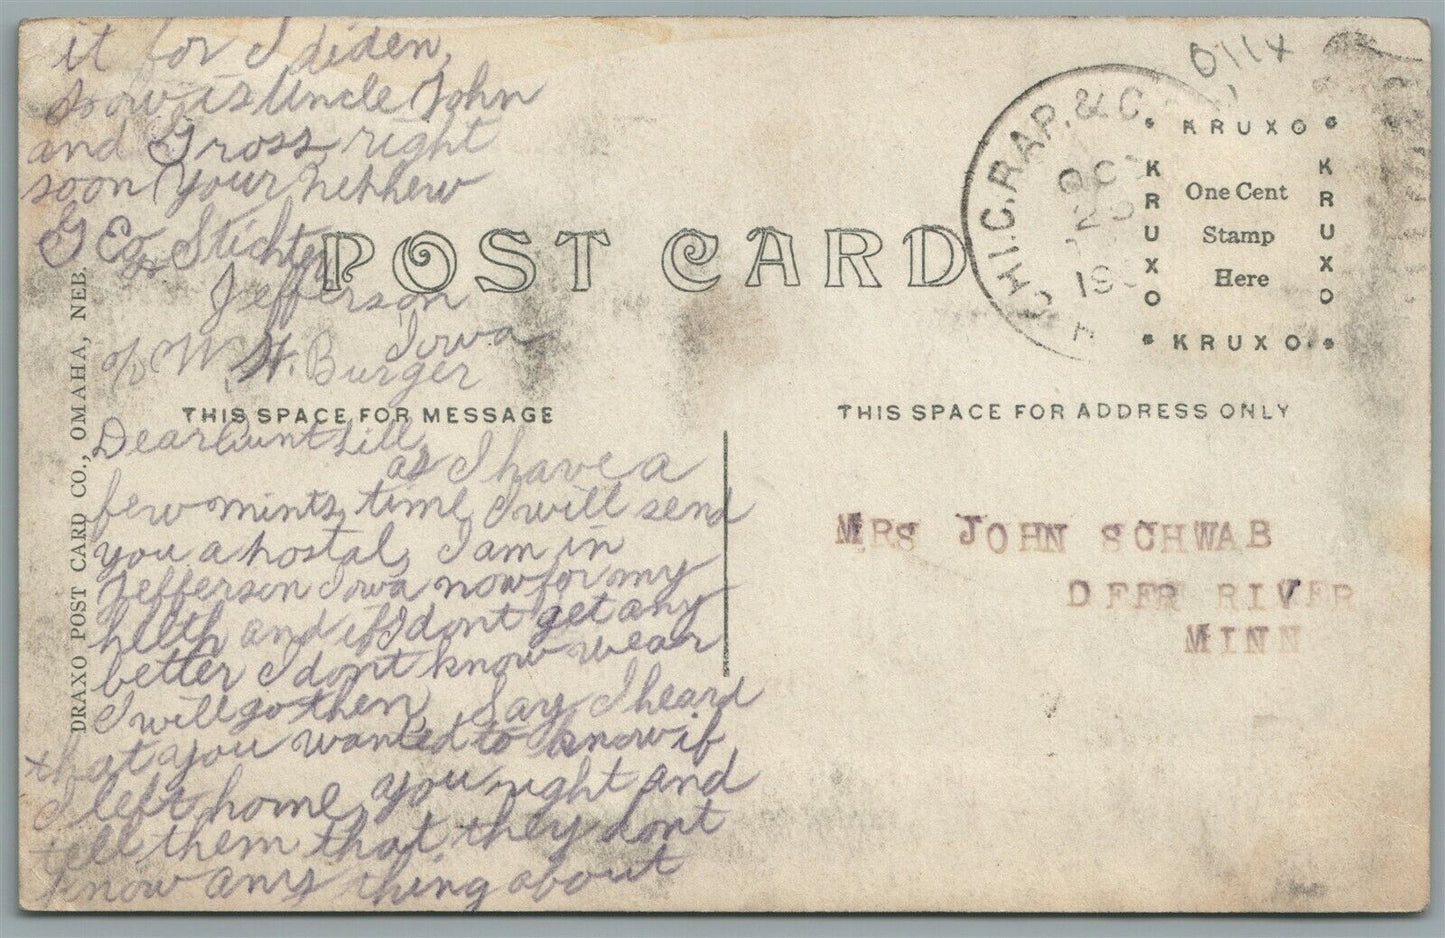 Dear Aunt Lill,
as I have a
few mints, time I will send
you a postal, I am in
Jefferson Iowa now for my
helth and if I dont get any
better I dont know wear
I will go then, Say I heard
that you wanted to know if
I left home, you right and
tell them that they dont
know any thing about
it for I diden,
how is Uncle John
and Gross, right
soon your nephew
G Eo Stichter
Jefferson
Iowa
c/o W. H. Burger
POST CARD
THIS SPACE FOR MESSAGE
THIS SPACE FOR ADDRESS ONLY
DRAXO POST CARD CO., OMAHA, NEB.
CHIC, RAP, & C.
OCT
25
19
KRUXO
KRUXO
KRUXO
KRUXO
One Cent
Stamp
Here
MRS JOHN SCHWAB
DEER RIVER
MINN